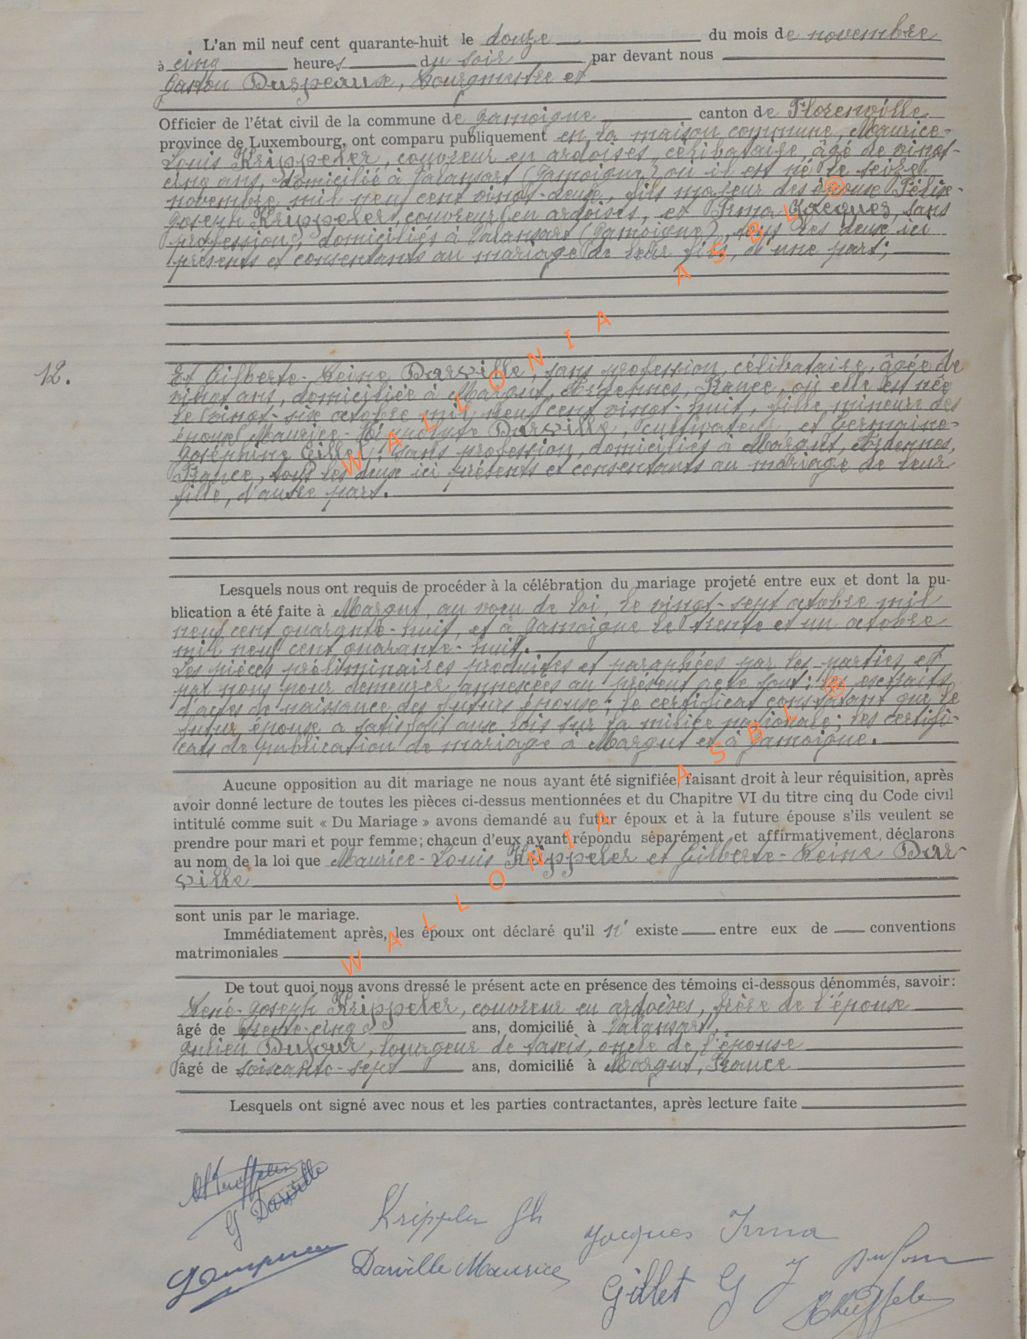 L'an mil neuf cent quarante-huit le douze du mois de novembre
à cinq heures du soir par devant nous
Gaston Duspeaux, Bourgmestre et
Officier de l'état civil de la commune de Jamoigne canton de Florenville
province de Luxembourg, ont comparu publiquement en la maison commune, Maurice-
Louis Krippeler, couvreur en ardoises, célibataire, âgé de vingt-
cinq ans, domicilié à Valansart (Jamoigne), où il est né le seize
novembre mil neuf cent vingt-deux, fils majeur des époux Félix-
Joseph Krippeler, couvreur en ardoises, et Irma Jacques, sans
profession, domiciliés à Valansart (Jamoigne), tous les deux ici
présents et consentants au mariage de leur fils, d'une part;
12.
Et Gilberte-Reine Darville, sans profession, célibataire, âgée de
vingt ans, domiciliée à Margut, Ardennes, France, où elle est née
le vingt-six octobre mil neuf cent vingt-huit, fille mineure des
époux Maurice- Darville, cultivateur, et Germaine-
Joséphine Gillet, sans profession, domiciliés à Margut, Ardennes,
France, tous les deux ici présents et consentants au mariage de leur
fille, d'autre part.
Lesquels nous ont requis de procéder à la célébration du mariage projeté entre eux et dont la pu-
blication a été faite à Margut, au vœu de loi, le vingt-sept octobre mil
neuf cent quarante-huit, et à Jamoigne le trente et un octobre
mil neuf cent quarante-huit.
Les pièces préliminaires produites et paraphées par les parties et
par nous pour demeurer annexées au présent acte sont: les extraits
d'actes de naissance des futurs époux; le certificat constatant que le
futur époux a satisfait aux lois sur la milice nationale; les certifi-
cats de publication de mariage à Margut et à Jamoigne.
Aucune opposition au dit mariage ne nous ayant été signifiée, faisant droit à leur réquisition, après
avoir donné lecture de toutes les pièces ci-dessus mentionnées et du Chapitre VI du titre cinq du Code civil
intitulé comme suit « Du Mariage » avons demandé au futur époux et à la future épouse s'ils veulent se
prendre pour mari et pour femme; chacun d'eux ayant répondu séparément et affirmativement, déclarons
au nom de la loi que Maurice-Louis Krippeler et Gilberte-Reine Dar-
ville
sont unis par le mariage.
Immédiatement après, les époux ont déclaré qu'il n' existe entre eux de conventions
matrimoniales
De tout quoi nous avons dressé le présent acte en présence des témoins ci-dessous dénommés, savoir:
René-Joseph Krippeler, couvreur en ardoises, frère de l'époux
âgé de trente-cinq ans, domicilié à Valansart,
Julien Dufour, de l'épouse
âgé de soixante-sept ans, domicilié à Margut, France
Lesquels ont signé avec nous et les parties contractantes, après lecture faite
G Darville
Krippler Jh
Jacques Irma
Darville Maurice
Gillet G
J Dufour
WALLONIA ASBL ®
WALLONIA ASBL ®